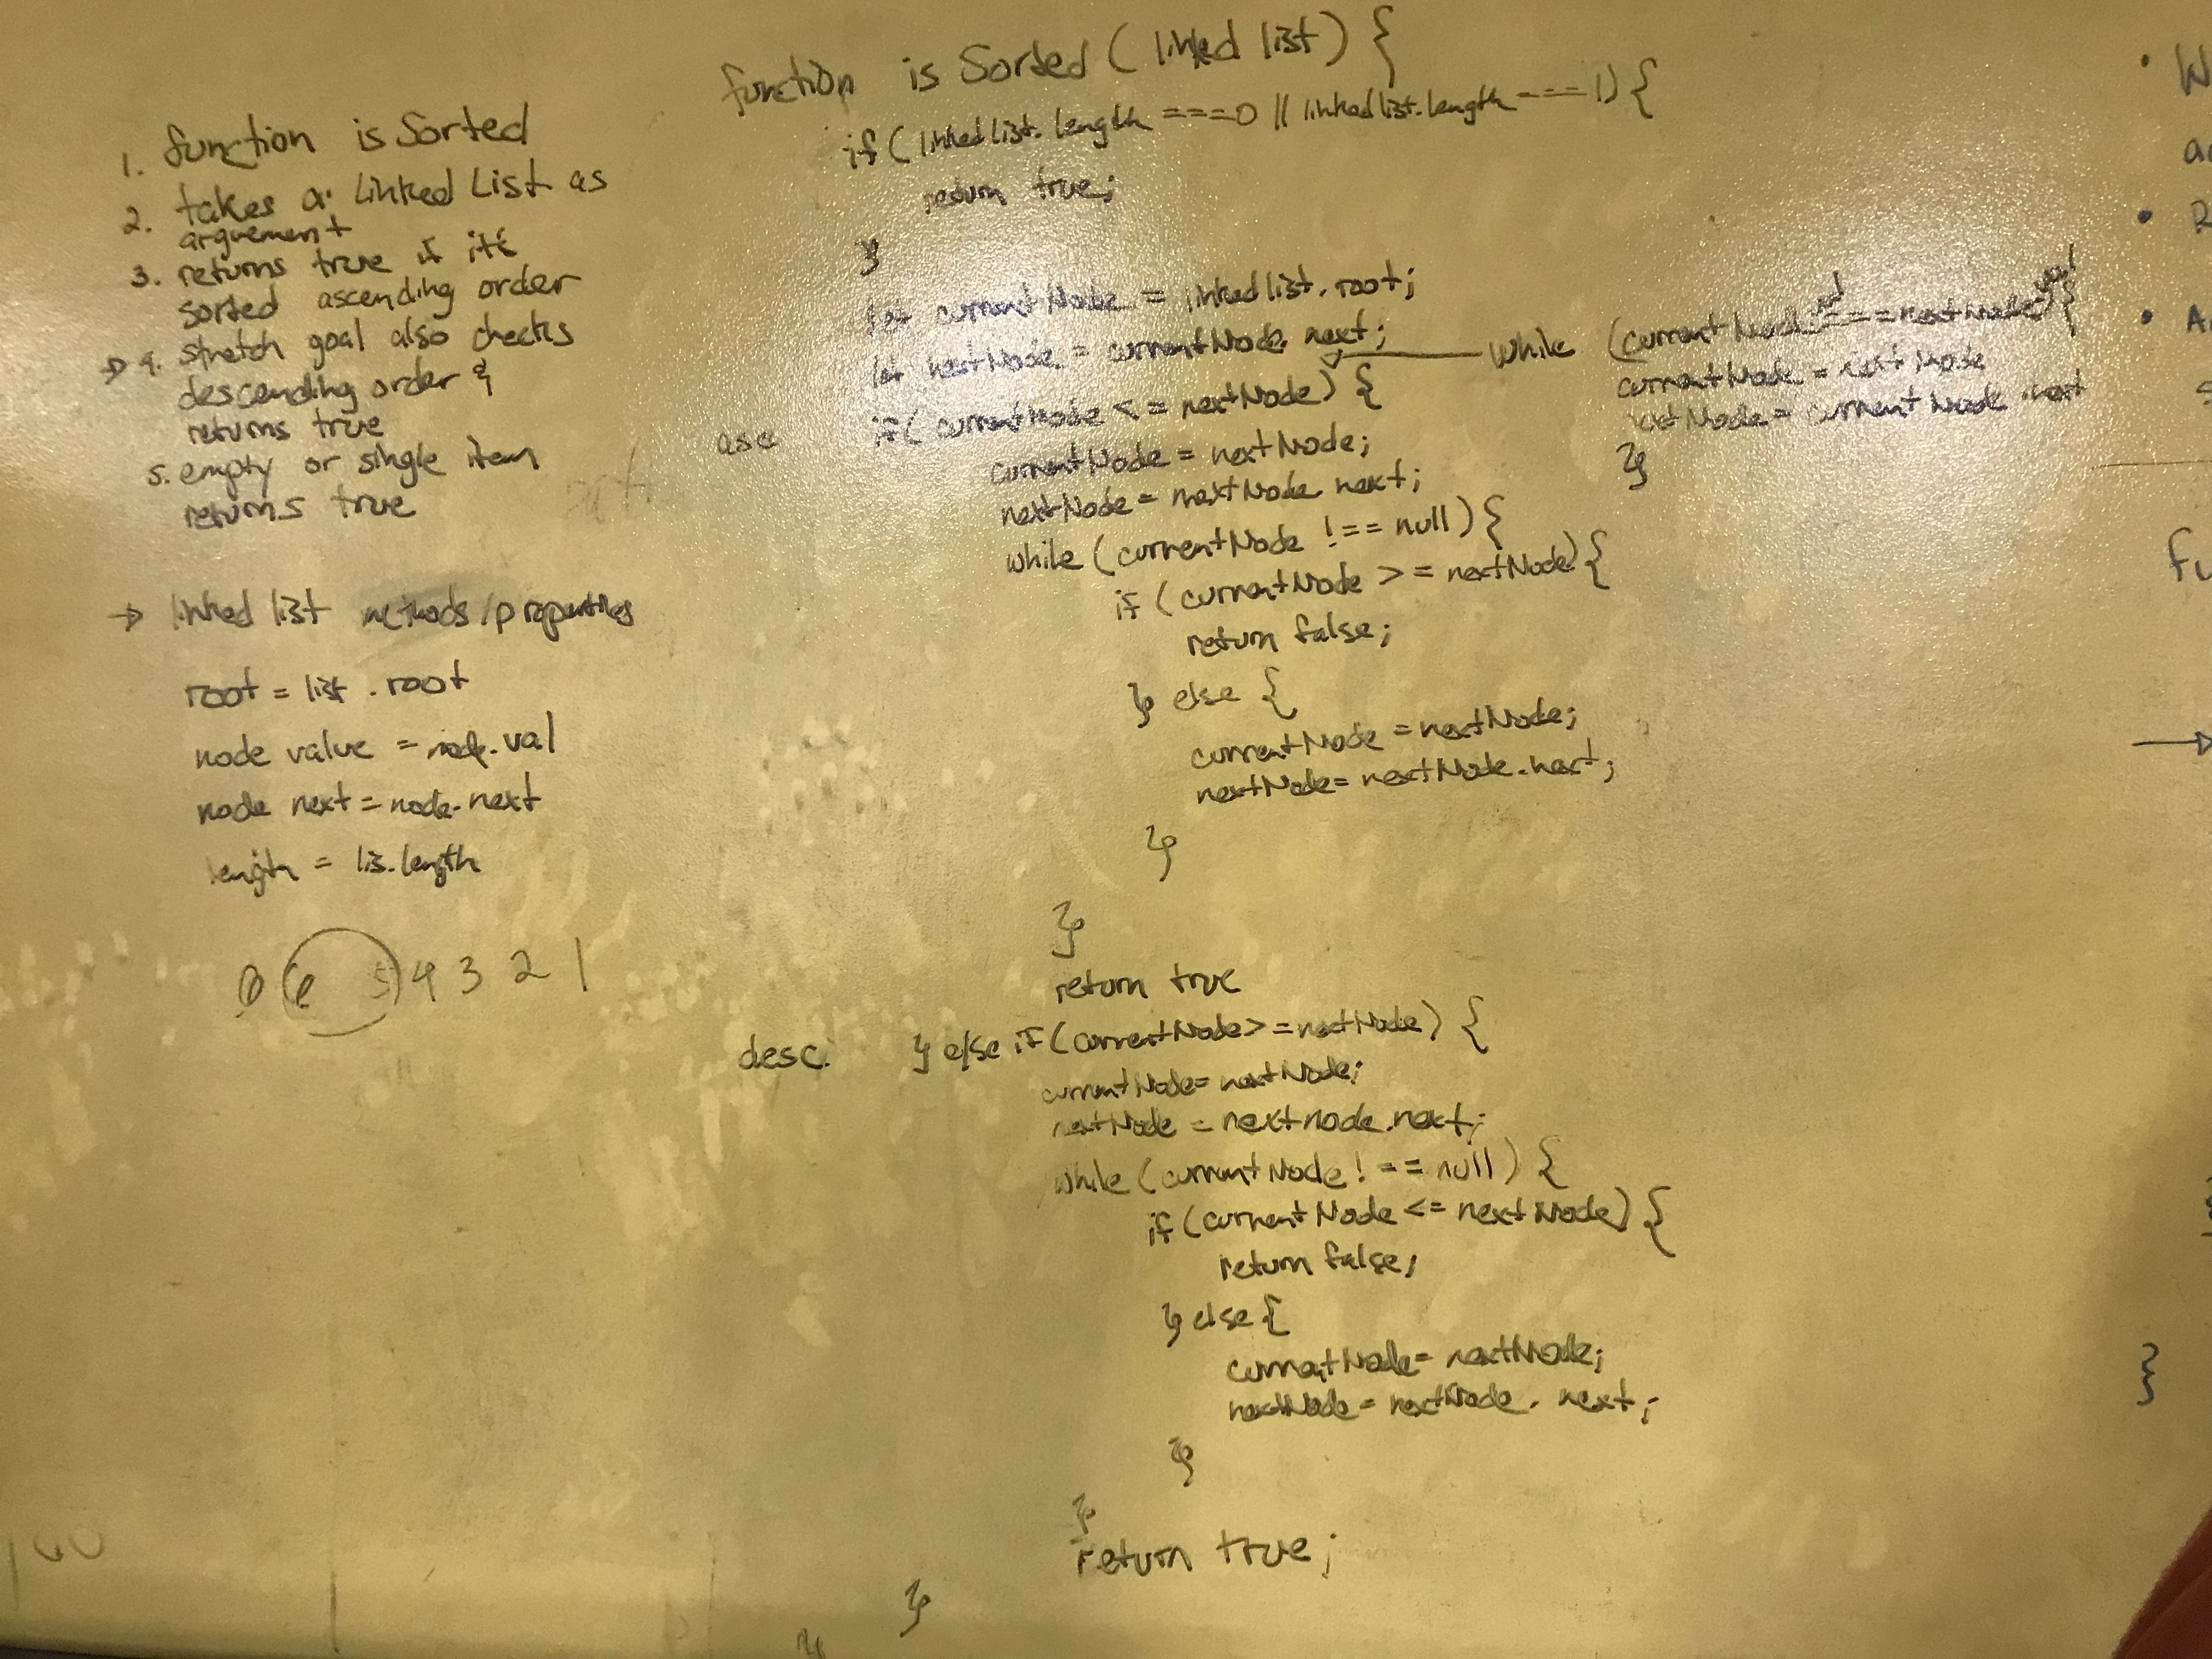 1. function isSorted
2. takes a linked List as
arguement
3. returns true if it's
sorted ascending order
→ 4. stretch goal also checks
descending order &
returns true
5. empty or single item
returns true
→ linked list methods/properties
root = list.root
node value = node.val
node next = node.next
length = lis.length
6 6 5 4 3 2 1
function isSorted(linked list) {
if(linkedlist.length ===0 || linkedlist.length ===1) {
return true;
}
let currentNode = linkedlist.root;
let nextNode = currentNode.next;
while (currentNode.val === nextNode.val) {
currentNode = nextNode
nextNode = currentNode.next
}
asc if(currentNode <= nextNode) {
currentNode = nextNode;
nextNode = nextNode.next;
while (currentNode !== null) {
if (currentNode >= nextNode) {
return false;
} else {
currentNode = nextNode;
nextNode = nextNode.next;
}
}
return true
desc. } else if (currentNode >= nextNode) {
currentNode = nextNode;
nextNode = nextnode.next;
while (currentNode !== null) {
if (currentNode <= nextNode) {
return false;
} else {
currentNode = nextNode;
nextNode = nextNode.next;
}
}
return true;
}
}